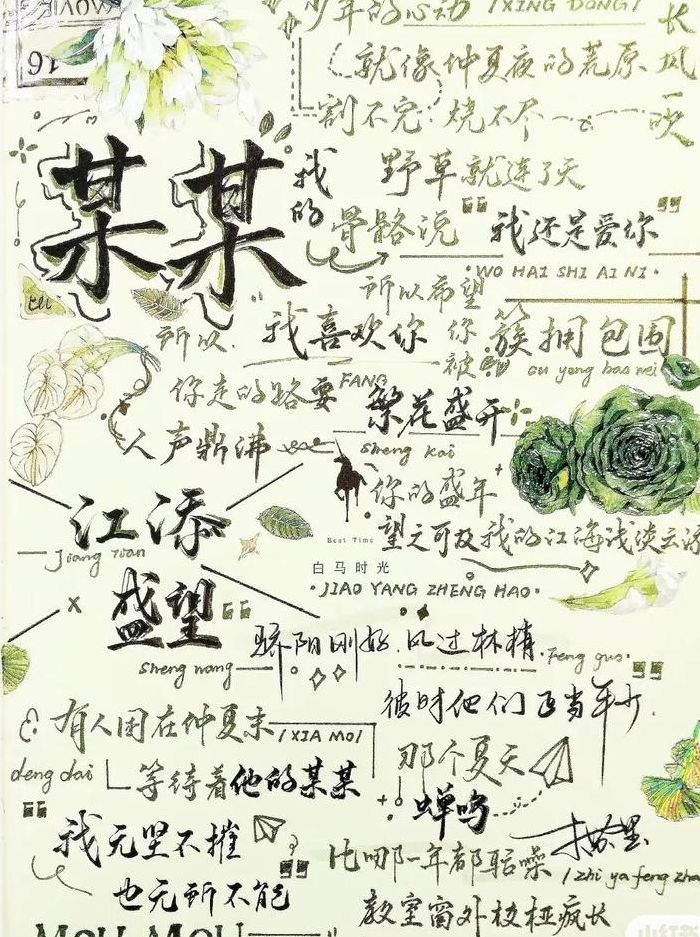 少年的心动 /XING DONG/
就像仲夏夜的荒原
割不完 烧不尽
长风一吹
野草就连了天
某某
我的
骨骼说
“我还是爱你”
·WO HAI SHI AI NI·
所以希望
所以.
我喜欢你
你 被 簇拥包围
你走的路要
FANG
繁花盛开
sheng kai
人声鼎沸
你的盛年
Best Time
白马时光
望之可及 我的江海
江添
Jiang Tian
·JIAO YANG ZHENG HAO·
盛望
sheng wang
骄阳刚好.风过林梢.
Feng guo·
彼时他们正当年少.
有人困在仲夏末
/XIA MO/
deng dai
等待着他的某某
那个夏天
蝉鸣
“我无坚不摧
也无所不能”
比哪一年都聒噪
教室窗外枝桠疯长
MOU MOU
小红书